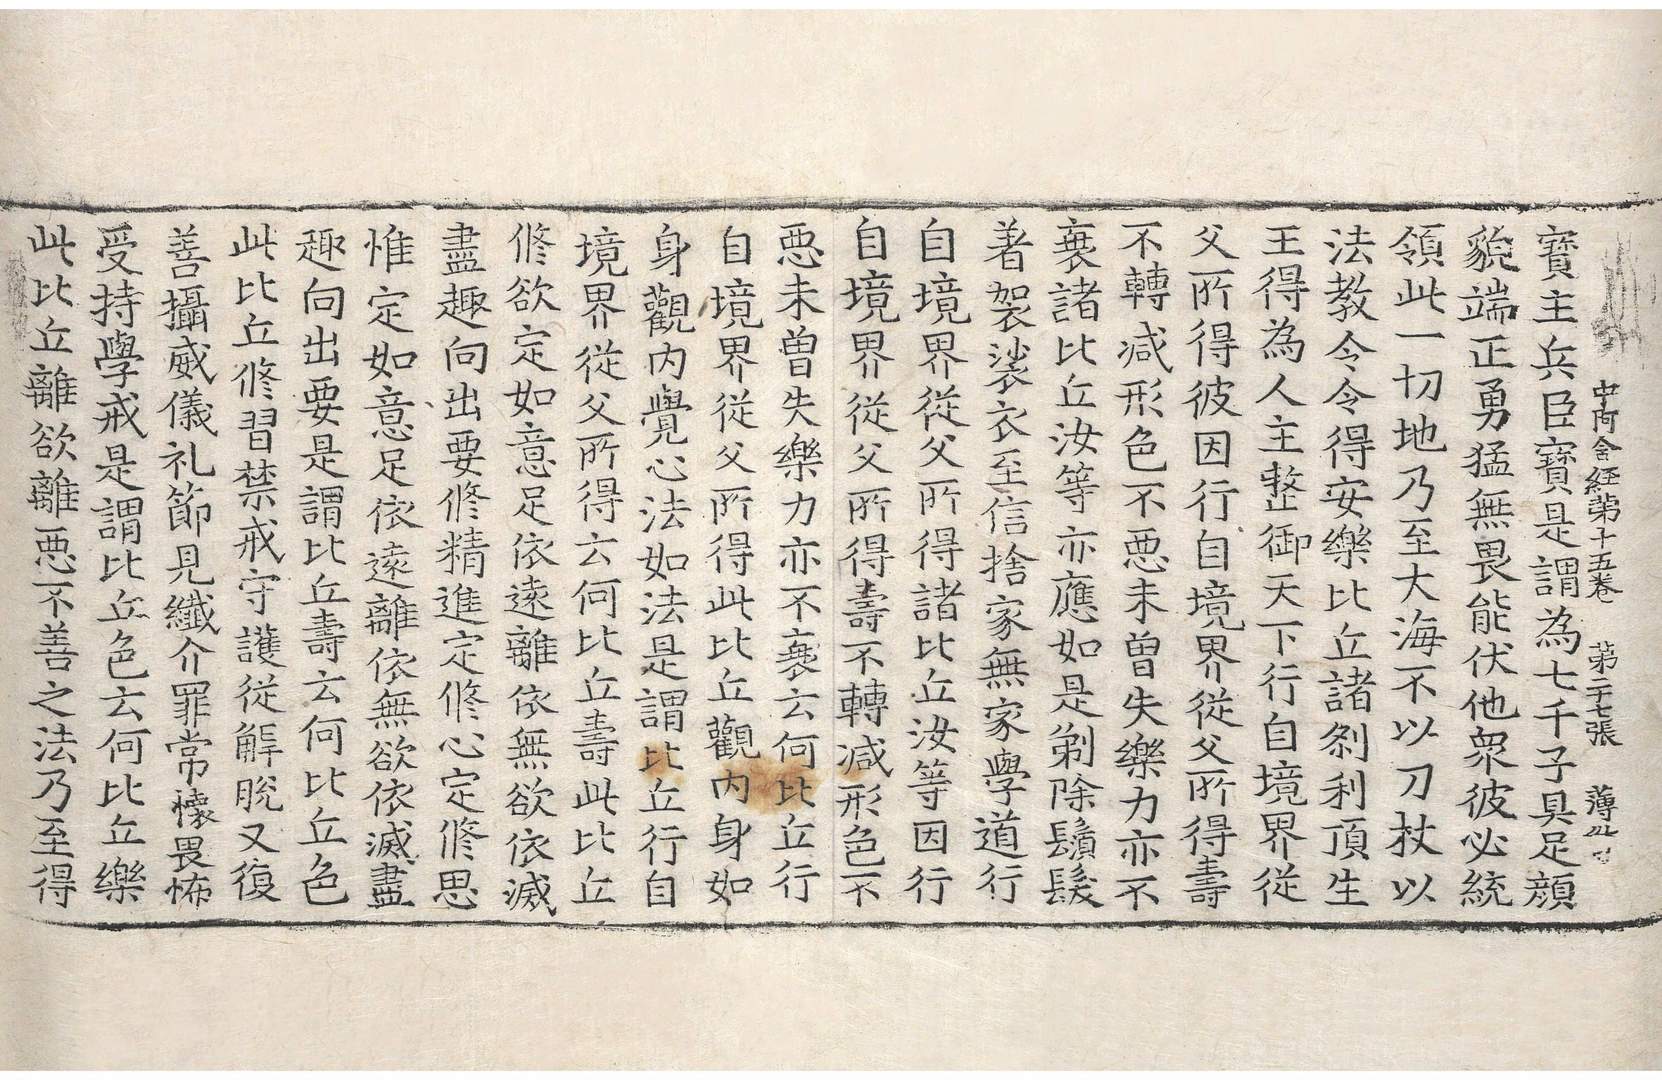 中阿含經第十五卷 第二十七張 薄
寶主兵臣寶是謂為七千子具足顔
貌端正勇猛無畏能伏他衆彼必統
領此一切地乃至大海不以刀杖以
法教令令得安樂比丘諸刹利頂生
王得為人主整御天下行自境界從
父所得彼因行自境界從父所得壽
不轉減形色不惡未曽失樂力亦不
衰諸比丘汝等亦應如是剃除鬚髮
著袈裟衣至信捨家無家學道行
自境界從父所得諸比丘汝等因行
自境界從父所得壽不轉減形色不
惡未曽失樂力亦不衰云何比丘行
自境界從父所得此比丘觀内身如
身觀内覺心法如法是謂比丘行自
境界從父所得云何比丘壽此比丘
修欲定如意足依遠離依無欲依滅
盡趣向出要修精進定修心定修思
惟定如意足依遠離依無欲依滅盡
趣向出要是謂比丘壽云何比丘色
此比丘修習禁戒守護從解脫又復
善攝威儀礼節見纖介罪常懷畏怖
受持學戒是謂比丘色云何比丘樂
此比丘離欲離惡不善之法乃至得